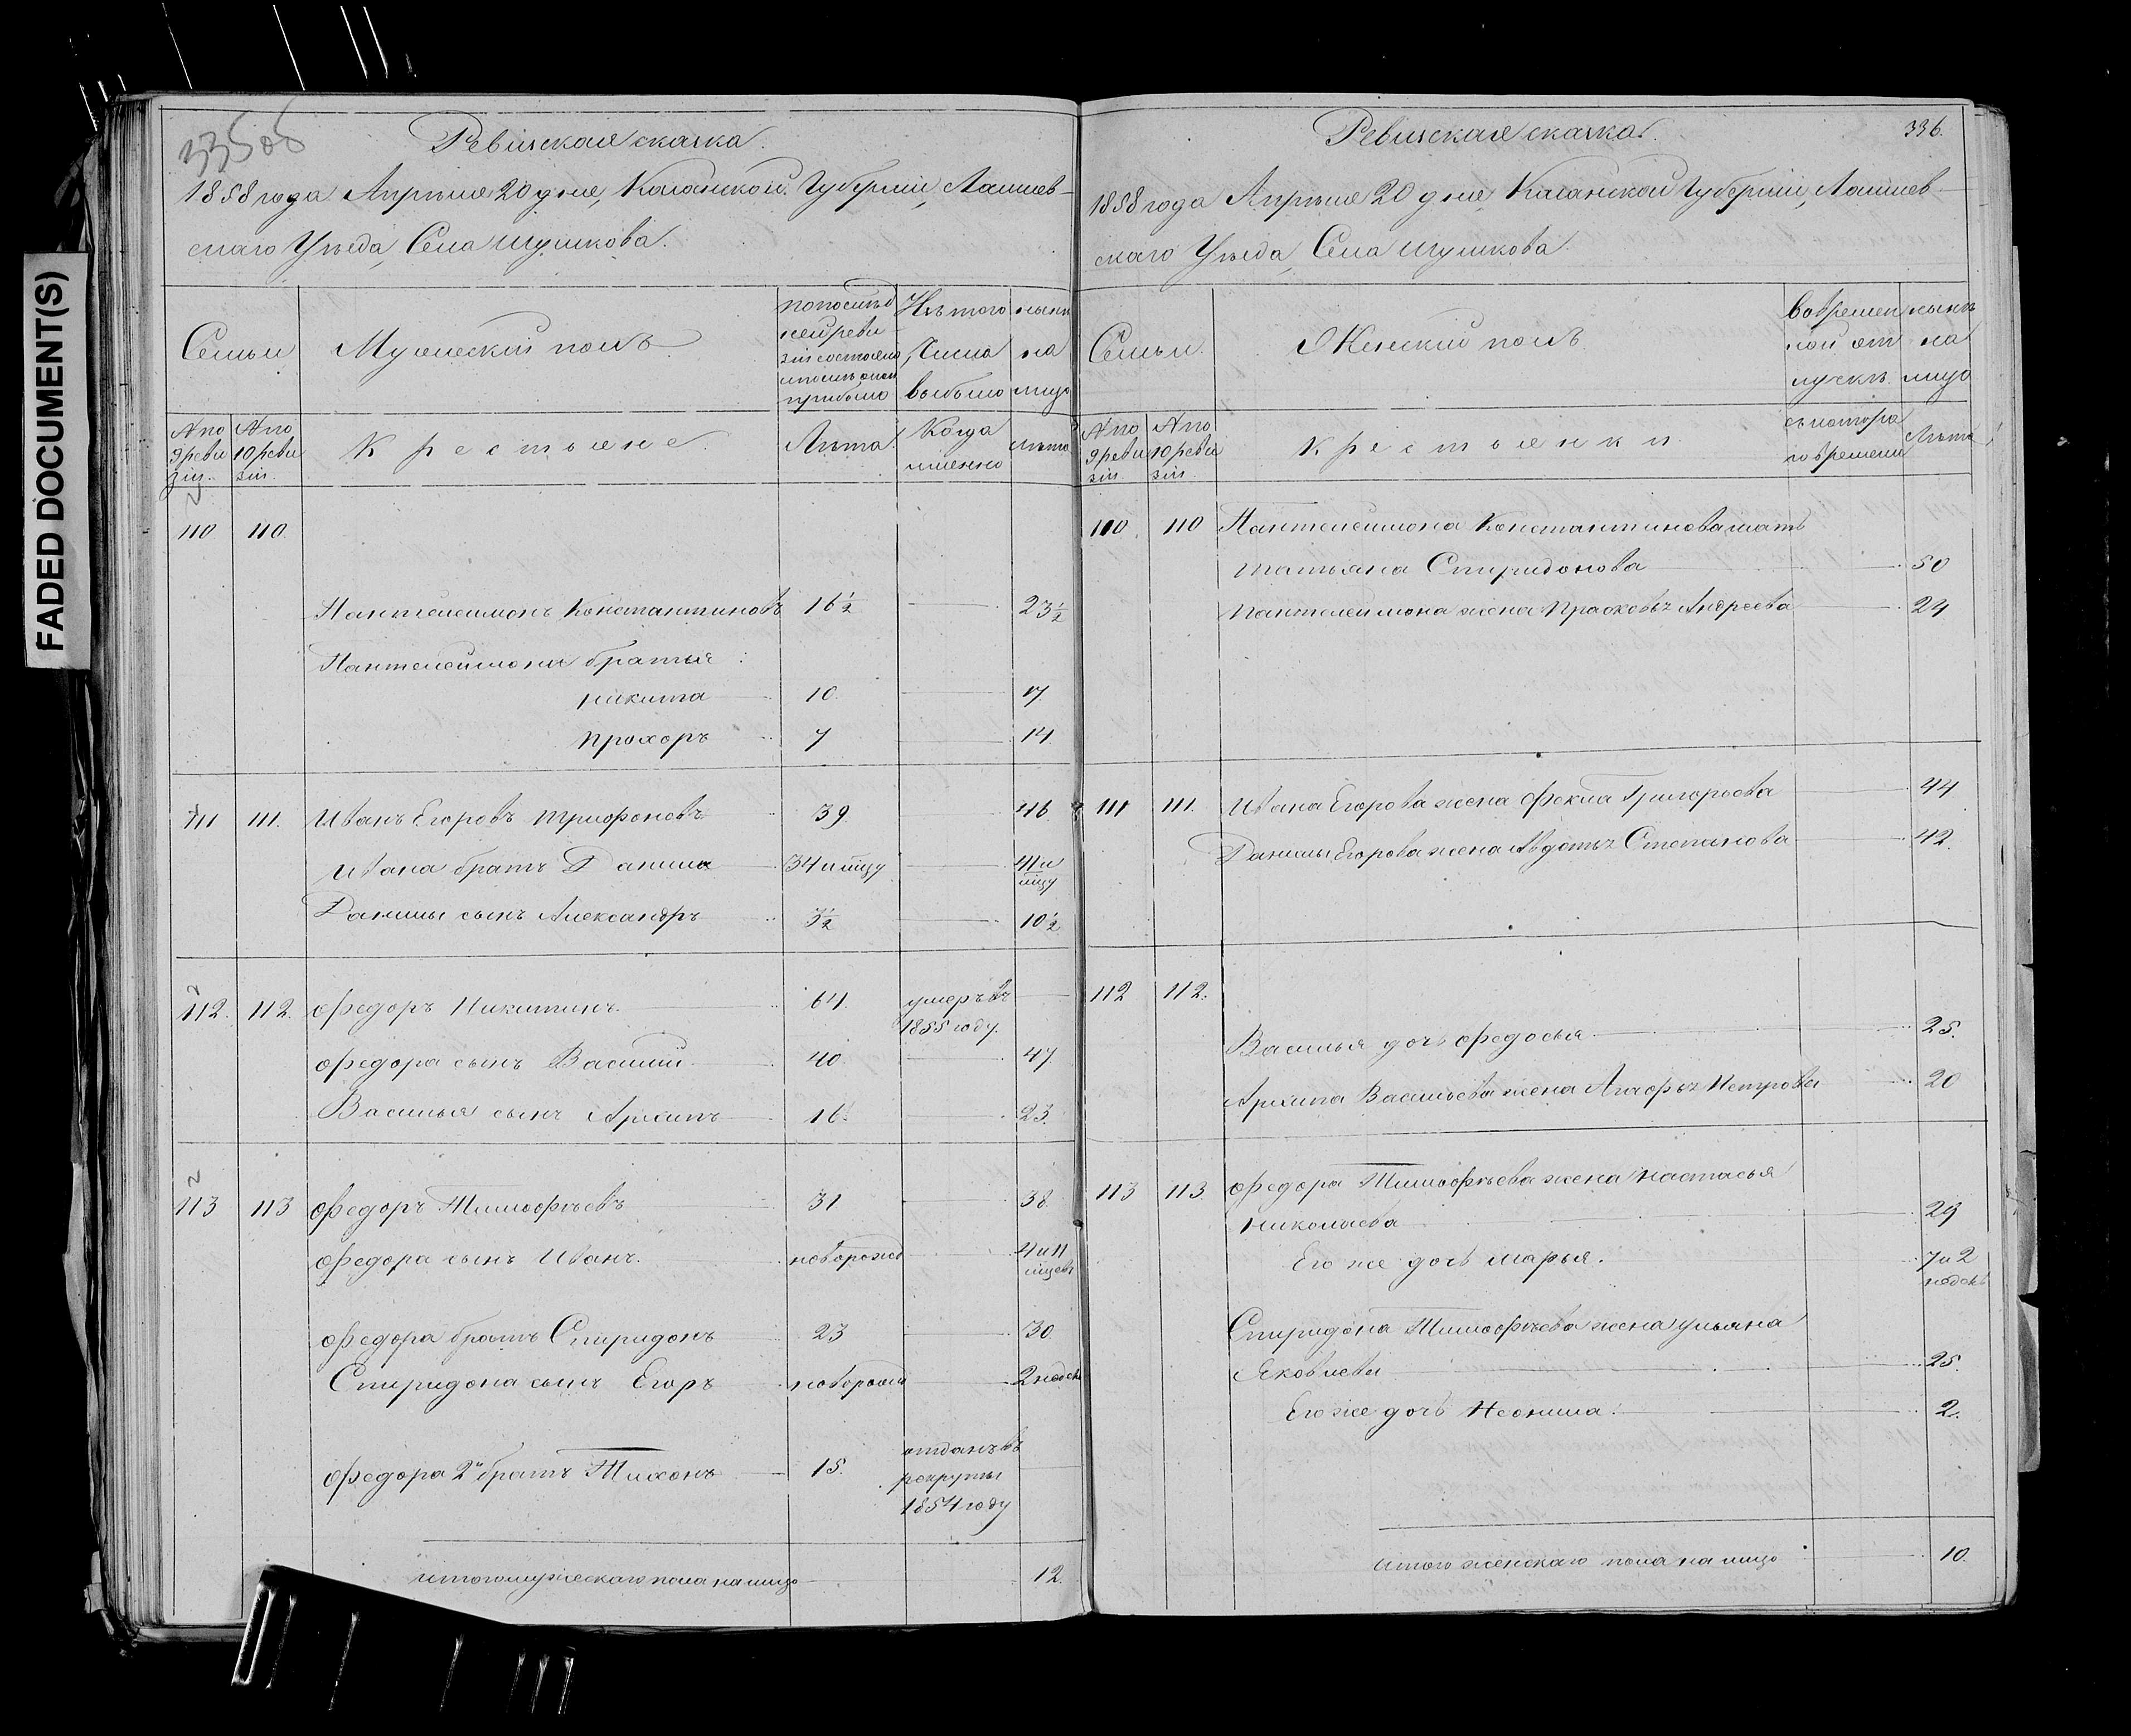 FADED DOCUMENT(S)
335об
Ревизская сказка.
1858 года Апреля 20 дня, Казанской Губернiи, Лаишев-
скаго Уезда, Села Шушкова.
Семьи
Мужескiй полъ
По послед
ней реви
зiи состояло
и после оной
прибыло
Изъ того
числа
выбыло
ныне
на
лицо
№ по
9 реви
зiи.
№ по
10 реви
зiи.
Крестьяне
Лета.
Когда
именно
лета
110 110.
Пантелеимонъ Константиновъ 16 1/2 23 1/2
Пантелеймона братья:
никита 10. 17.
прохоръ 7 14.
111 111. Иванъ Егоровъ трифоновъ 39. 46.
Ивана братъ Данила 34 и мцу 41 и
мцу
Данилы сынъ Александръ 3 1/2 10 1/2
112. 112. Федоръ Никитинъ. 64. умеръ въ
1855 году.
Федора сынъ Василий 40. 47.
Василья сынъ Архипъ 16. 23.
113 113 Федоръ Тимофеевъ 31 38.
Федора сынъ Иванъ. новорожд 4 и 11
мцевъ
Федора братъ Спиридонъ 23 30.
Спиридона сынъ Егоръ новорожд 2 недель
Федора 2й братъ Тихонъ 15. отданъ въ
рекруты
1854 году
итого мужескаго пола на лицо 12.
Ревизская сказка.
336.
1858 года Апреля 20 дня, Казанской Губернiи, Лаишев
скаго Уезда, Села Шушкова.
Семьи.
Женскiй полъ.
во времен
ной от
лучке.
ныне
на
лицо
№ по
9 реви
зiи.
№ по
10 реви
зiи.
крестьянки.
съ котора
го времени
Лета
110. 110 Пантелеимона Константинова мать
татьяна Спиридонова 50
Пантелеимона жена Прасковья Андреева 24
111 111. Ивана Егорова жена Фекла Григорьева 44
Данилы Егорова жена Авдотья Степанова 42.
112 112.
Василья дочь Федосья 25.
Архипа Васильева жена Агафья Петрова 20
113 113 Федора Тимофеева жена настасья
николаева 29
Его же дочь марья. 7 и 2
недель
Спиридона Тимофеева жена ульяна
Яковлева 25.
Его же дочь Неонила. 2.
итого женскаго пола на лицо 10.